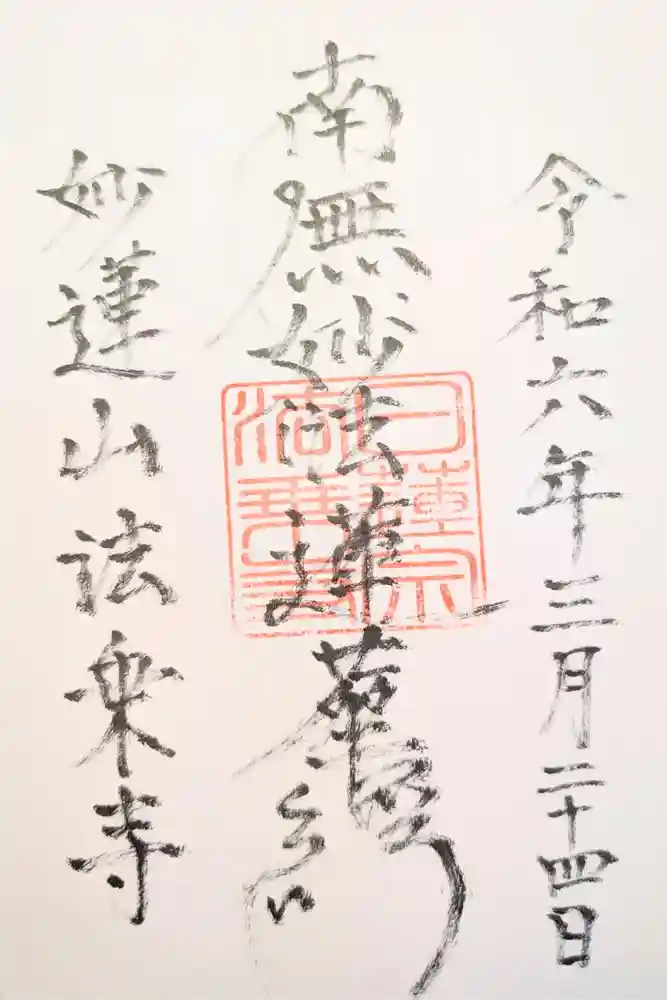 令和六年三月二十四日
南無妙法蓮華經
妙蓮山法楽寺
日蓮宗